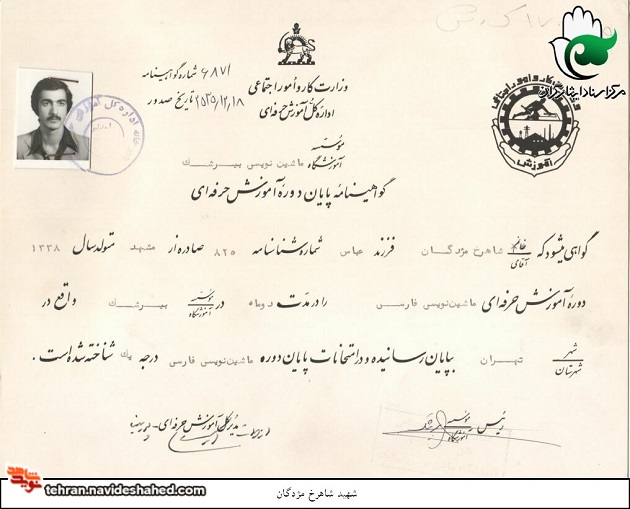 مرکز اسناد ایثارگران
وزارت کار و امور اجتماعی
اداره کل آموزش حرفه‌ای
۶۸۷۱ شماره گواهینامه
۲۵۳۵/۱۲/۱۸ تاریخ صدور
آموزش
مؤسسه
آموزشگاه ماشین نویسی بیرشک
گواهینامه پایان دوره آموزش حرفه‌ای
گواهی میشود که خانم آقای شاهرخ مژدگان فرزند عباس شماره شناسنامه ۸۲۵ صادره از مشهد متولد سال ۱۳۳۸
دوره آموزش حرفه‌ای ماشین نویسی فارسی را در مدت دو ماه در مؤسسه آموزشگاه بیرشک واقع در
شهر شهرستان تهران بپایان رسانیده و در امتحانات پایان دوره ماشین نویسی فارسی درجه یک شناخته شده است.
رئیس مؤسسه آموزشگاه
مدیر کل آموزش حرفه‌ای
نوید شاهد
tehran.navideshahed.com
شهید شاهرخ مژدگان